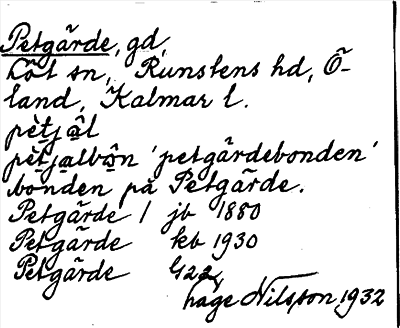 Petgärde, gd,
Löt sn, Runstens hd, Ö-
land, Kalmar l.
pèt̯jå̯l
pèt̯ja̯lbån 'petgärdebonden'
bonden på Petgärde.
Petgärde / jb 1880
Petgärde kb 1930
Petgärde
Nilsson 1932